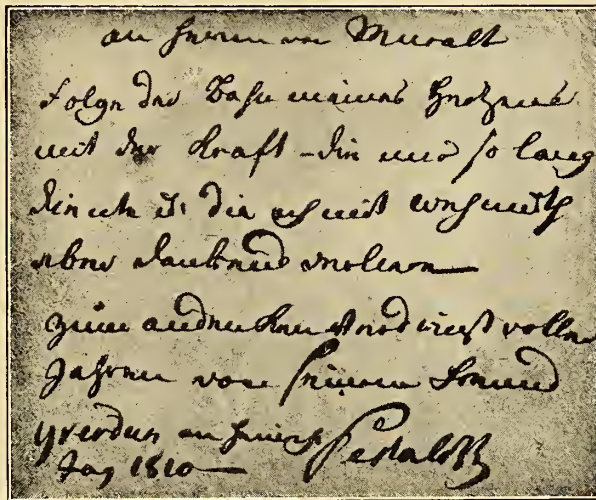 an Herren von Muralt
Folge der Bahn meines Herzens
mit der Kraft – die mir so lang
diente u: die ich mit wehmuth
aber dankend
zum andenken voller
Jahren von seinem Freund
Yverdun an Pestalozzi
Tag 1810 —